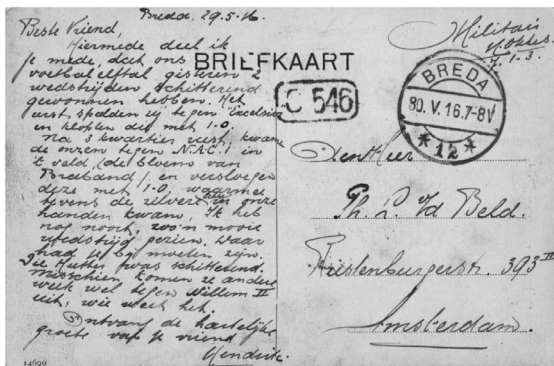 Breda, 29.5.16.
Beste Vriend,
Hiermede deel ik
je mede, dat ons
voetbalelftal gisteren 2
wedstrijden schitterend
gewonnen hebben. Het
eerst speelden wij tegen Excelsior
en klopten die met 1-0.
Na 3 kwartier rust, kwam
de onzen tegen N.A.C. 1 in
't veld, (de bloem van
Braband), en versloegen
deze met 1-0, waarmee
tevens de zilver in onze
handen kwam. Ik heb
nog nooit zoo'n mooie
wedstrijd gezien. Daar
had je bij moeten zijn.
De was schitterend.
Misschien komen ze andere
week wel tegen Willem II
uit, wie weet het.
Ontvang de hartelijke
groete van je vriend
Hendrik.
14690
BRIEFKAART
C 546
Militair
BREDA
30.V.16.7-8V
* 12 *
Den Heer
Ph. L. v/d Beld.
393 II
Amsterdam.